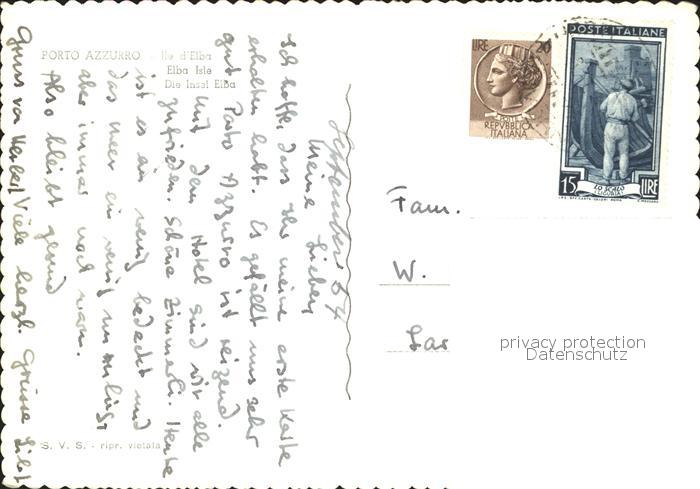 PORTO AZZURRO - Ile d'Elba
Elba Isle
Die Insel Elba
September 54
Meine Lieben
Ich hoffe, dass Ihr meine erste Karte
erhalten habt. Es gefällt uns sehr
gut. Porto Azzurro ist reizend.
Mit dem Hotel sind wir alle
zufrieden. Schöne Zimmerli. Heute
ist es ein wenig bedeckt und
das Meer ein wenig unruhig,
aber immer noch warm.
Also bleibt gesund
Viele herzl. Grüsse
Gruss von
S. V. S. - ripr. vietata
LIRE 20
POSTE
REPVBBLICA
ITALIANA
POSTE ITALIANE
15 LIRE
LO SCALO
(LIGURIA)
Fam.
W.
privacy protection
Datenschutz